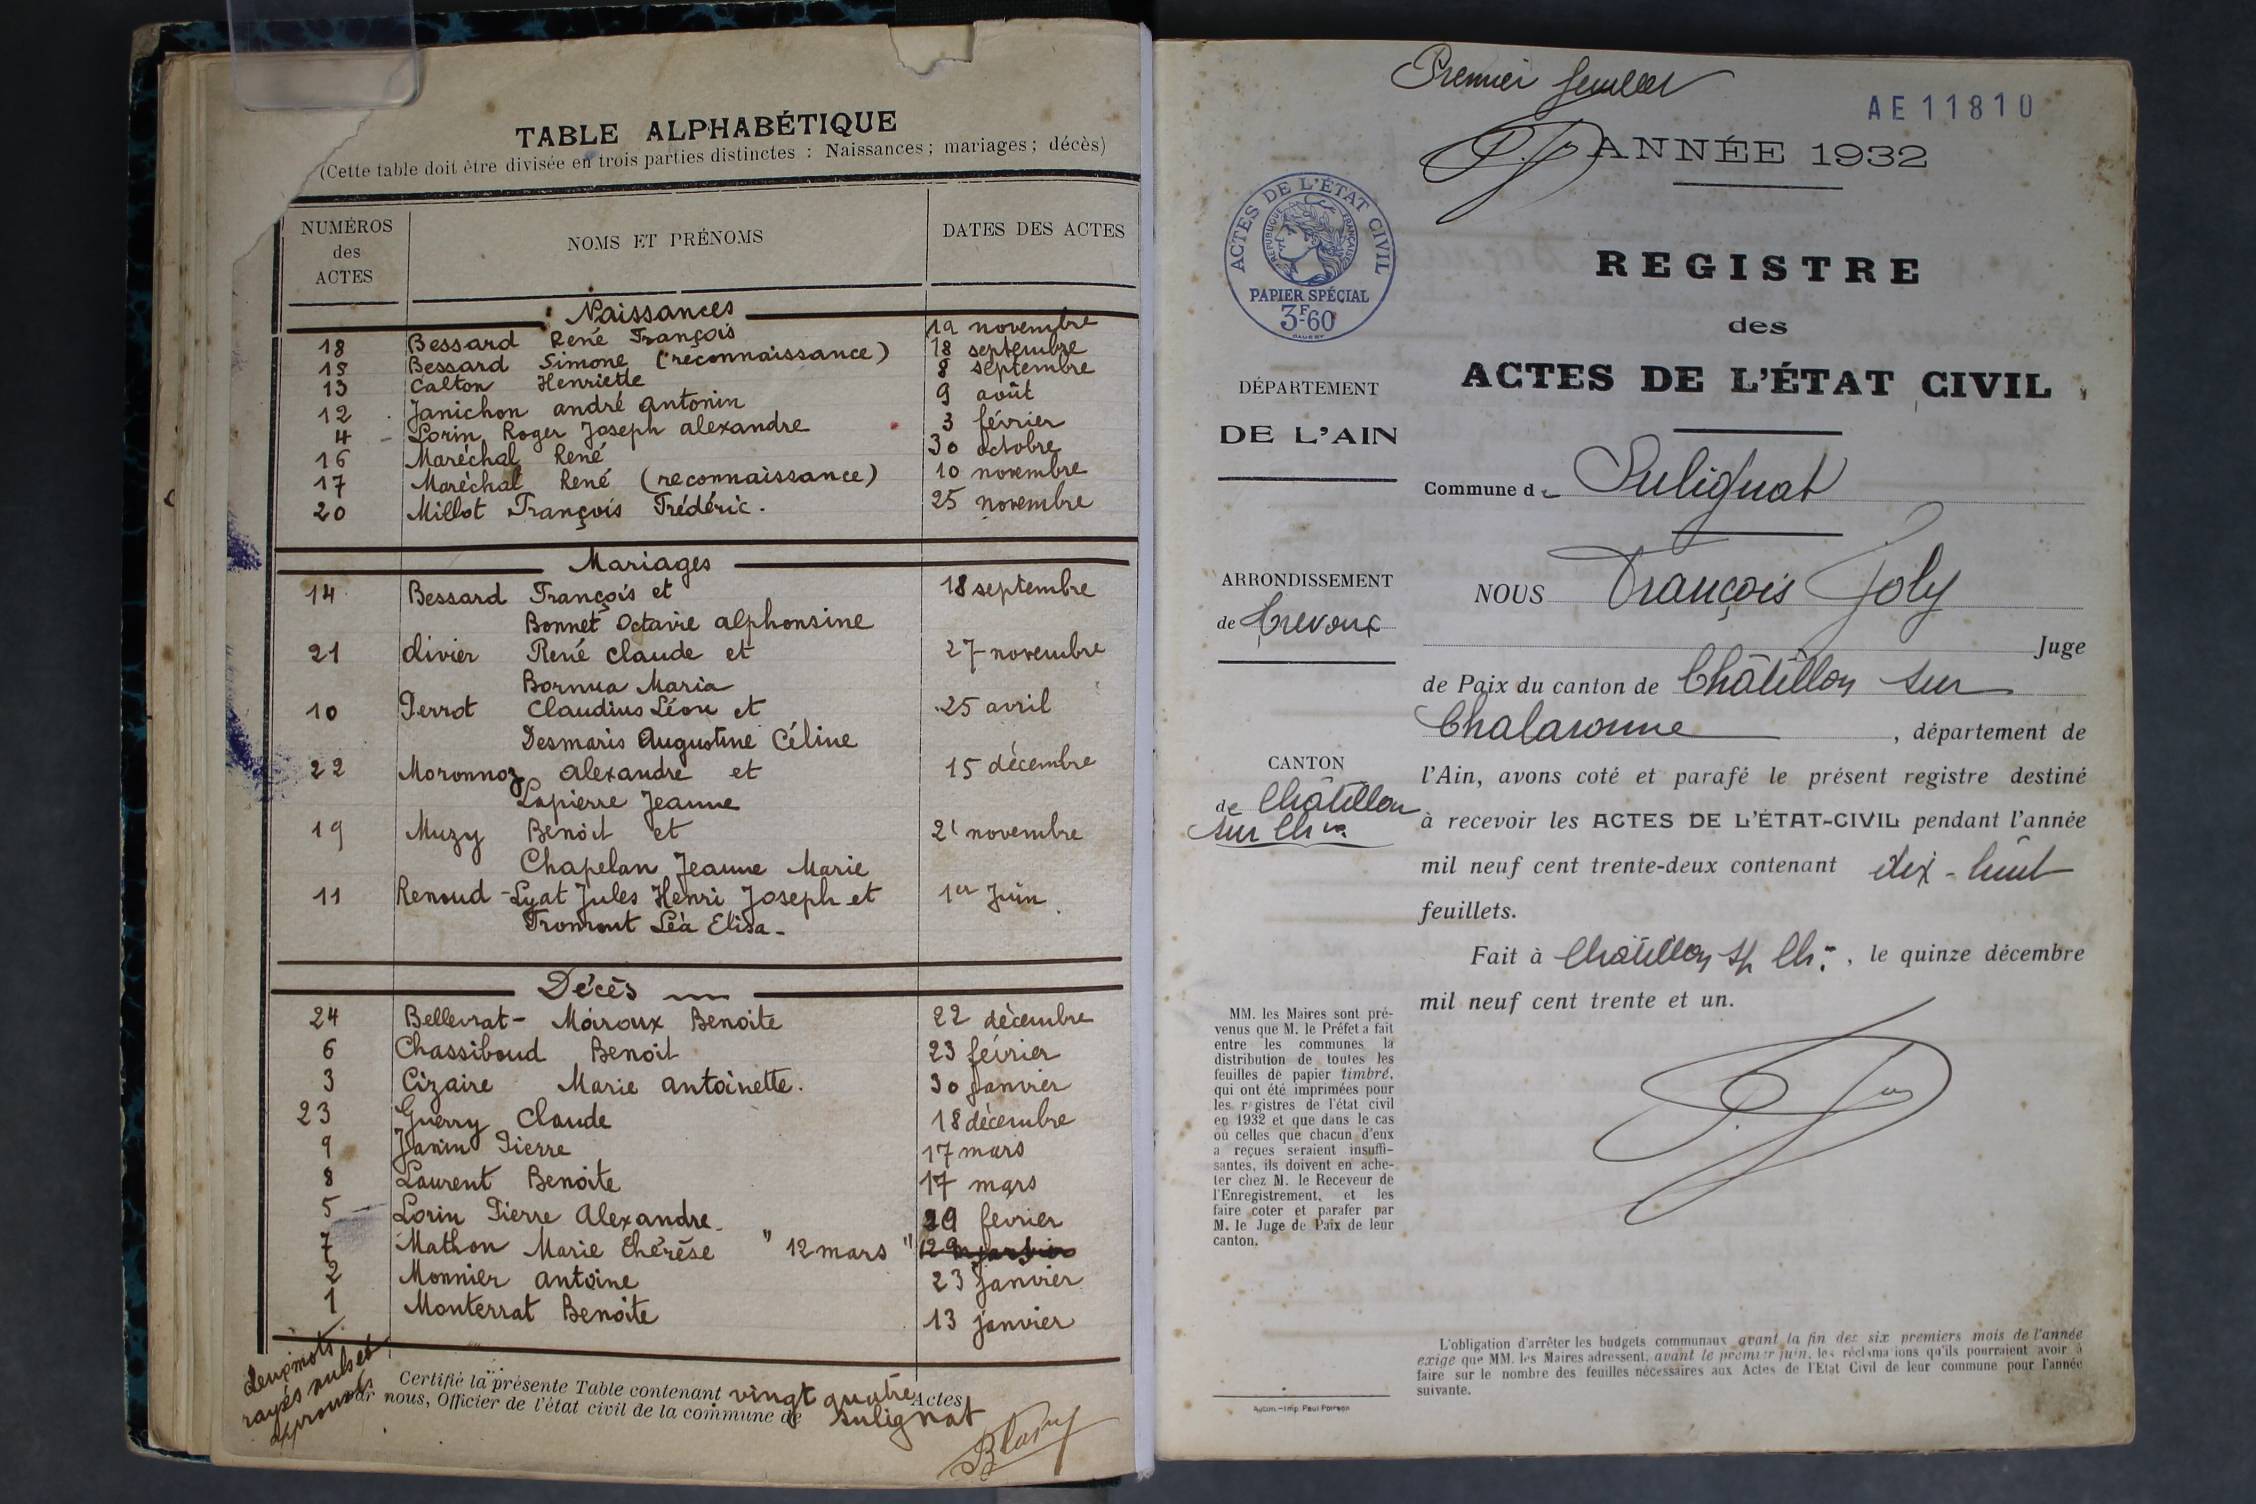 TABLE ALPHABÉTIQUE
(Cette table doit être divisée en trois parties distinctes : Naissances ; mariages ; décès)
NUMÉROS des ACTES NOMS ET PRÉNOMS DATES DES ACTES
Naissances
18 Bessard René François 19 novembre
15 Bessard Simone (reconnaissance) 18 septembre
13 Calton Henriette 8 septembre
12 Janichon andré antonin 9 août
4 Lorin Roger Joseph alexandre 3 février
16 Maréchal René 30 octobre
17 Maréchal René (reconnaissance) 10 novembre
20 Millot François Frédéric. 25 novembre
Mariages
14 Bessard François et 18 septembre
Bonnet Octavie alphonsine
21 Olivier René Claude et 27 novembre
Bornua Maria
10 Perrot Claudius Léon et 25 avril
Desmaris Augustine Céline
22 Moronnoz alexandre et 15 décembre
Lapierre Jeanne
19 Muzy Benoît et 21 novembre
Chapelan Jeanne Marie
11 Renoud-Lyat Jules Henri Joseph et 1er Juin
Fromont Léa Elisa-
Décès
24 Bellevrat-Moiroux Benoite 22 décembre
6 Chassiboud Benoit 23 février
3 Cizaire Marie antoinette. 30 janvier
23 Guerry Claude 18 décembre
9 Janin Pierre 17 mars
8 Laurent Benoite 17 mars
5 Lorin Pierre Alexandre 29 février
7 Mathon Marie thérèse " 12 mars "
2 Monnier antoine 23 janvier
1 Monterrat Benoite 13 janvier
deux mots
rayés nuls et
approuvés
Certifié la présente Table contenant vingt quatre Actes
par nous, Officier de l'état civil de la commune de Sulignat
Premier feuillet
AE 11810
ANNÉE 1932
ACTES DE L'ÉTAT CIVIL
RÉPUBLIQUE FRANÇAISE
PAPIER SPÉCIAL
3F.60
REGISTRE
des
ACTES DE L'ÉTAT CIVIL
DÉPARTEMENT
DE L'AIN
Commune de Sulignat
ARRONDISSEMENT
de Trevoux
NOUS François Joly
Juge
de Paix du canton de Châtillon sur
Chalaronne, département de
CANTON
de Châtillon
sur Chne
l'Ain, avons coté et parafé le présent registre destiné
à recevoir les ACTES DE L'ÉTAT-CIVIL pendant l'année
mil neuf cent trente-deux contenant dix-huit
feuillets.
Fait à Châtillon s/ Ch., le quinze décembre
mil neuf cent trente et un.
MM. les Maires sont pré-
venus que M. le Préfet a fait
entre les communes la
distribution de toutes les
feuilles de papier timbré,
qui ont été imprimées pour
les registres de l'état civil
en 1932 et que dans le cas
où celles que chacun d'eux
a reçues seraient insuffi-
santes, ils doivent en ache-
ter chez M. le Receveur de
l'Enregistrement, et les
faire coter et parafer par
M. le Juge de Paix de leur
canton.
L'obligation d'arrêter les budgets communaux avant la fin des six premiers mois de l'année
exige que MM. les Maires adressent, avant le premier juin, les réclamations qu'ils pourraient avoir à
faire sur le nombre des feuilles nécessaires aux Actes de l'Etat Civil de leur commune pour l'année
suivante.
Autun.—Imp. Paul Poirson